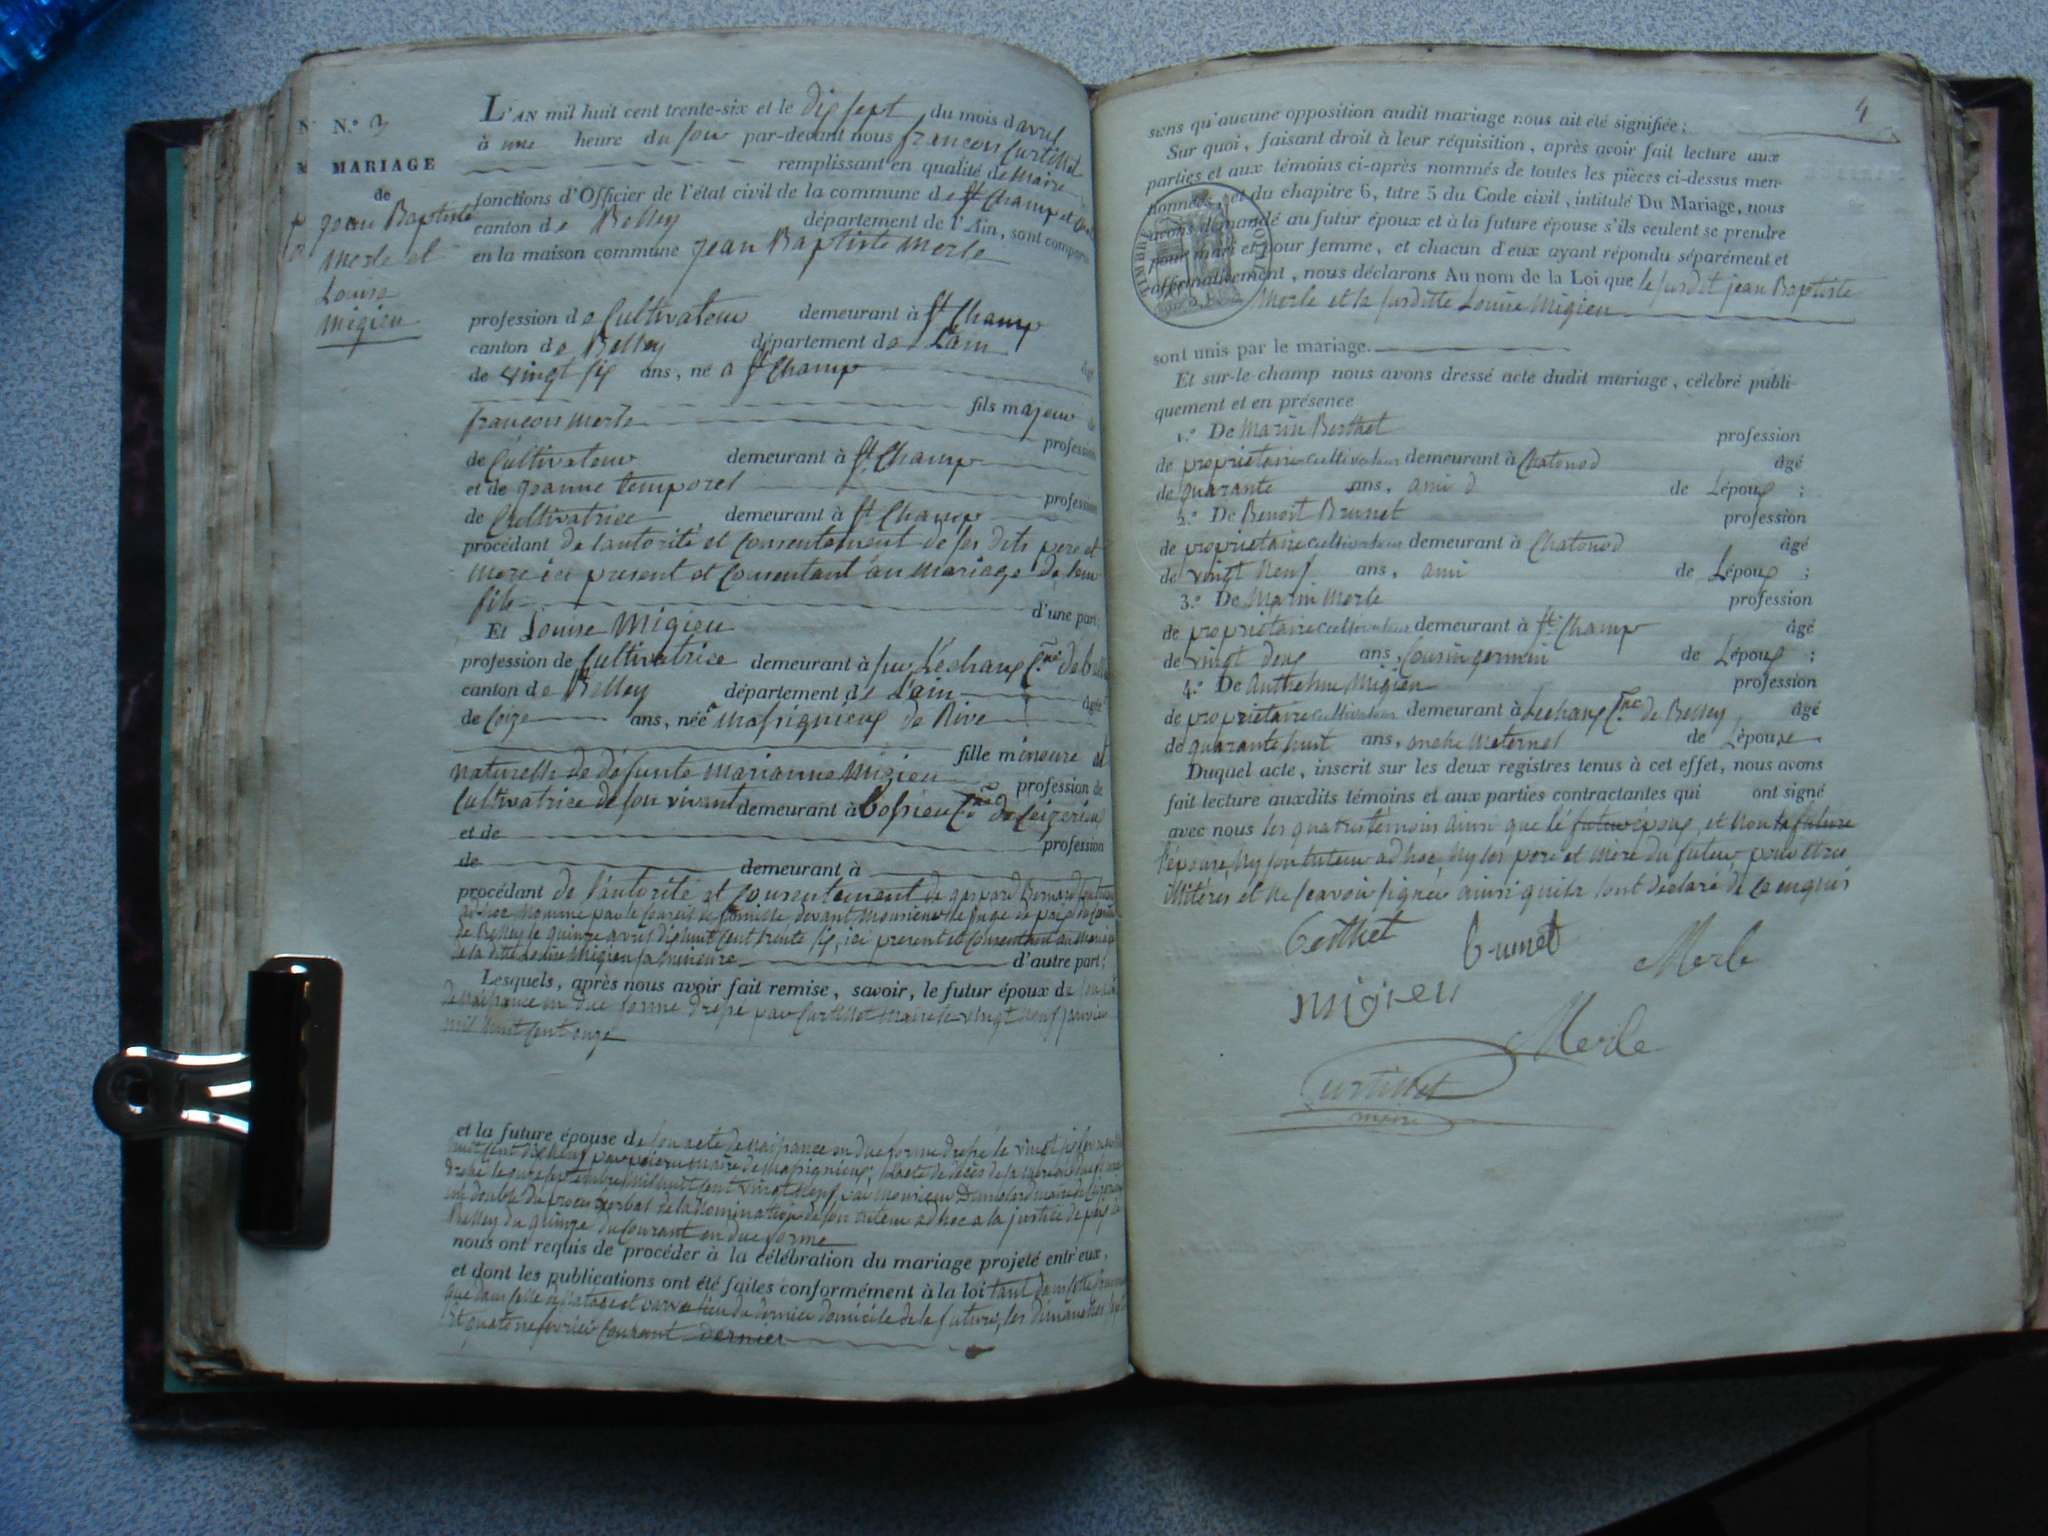 N.° 3
MARIAGE
de
jean Baptiste
merle et
Louise
migieu
L'AN mil huit cent trente-six et le dissept du mois d avril
à une heure du soir par-devant nous francois Curtillet
remplissant en qualité de Maire
fonctions d'Officier de l'état civil de la commune de St Champ et
canton de Belley département de l'Ain, sont comparus
en la maison commune jean Baptiste merle
profession de Cultivateur demeurant à St Champ
canton de Belley département de Lain
de vingt six ans, né a St Champ âgé
fils majeur de
francois merle profession
de Cultivateur demeurant à St Champ
et de jeanne temporel profession
de Cultivatrice demeurant à St Champ
procédant de lautorité et Consentement de ses dits pere et
mere ici present et Consentant au mariage de leur
fils d'une part;
Et Louise Migieu
profession de Cultivatrice demeurant à sur Léchaux Cne de belley
canton de Belley département de L'ain âgée
de seize ans, née a Massignieux de Rive
fille mineure et
naturelle de défunte Marianne Migieu profession de
Cultivatrice de son vivant demeurant à Cossieu Cne de Ceizerieu
et de profession
de demeurant à
procédant de l'autorité et Consentement de gaspard Bernard son tuteur
ad hoc nommé par le Conseil de famille devant Monsieur le juge de paix du Canton
de Belley le quinze avril dix huit Cent trente six, ici present et Consentant au Mariage
de la dite Louise Migieu sa mineure d'autre part;
Lesquels, après nous avoir fait remise, savoir, le futur époux de son acte
de naissance en due forme dressé par Curtillet Maire le vingt neuf janvier
mil huit Cent onze
et la future épouse de son acte de naissance en due forme dressé le vingt
huit Cent dix neuf par maire de Massignieux; Lacte de décès de sa mere
dressé le septembre mil huit Cent vingt neuf par Monsieur Dumolard maire de Ceizerieu
un double du proces verbal de la Nomination de son tuteur ad hoc a la justice de paix de
Belley du quinze du Courant en due forme
nous ont requis de procéder à la célébration du mariage projeté entr'eux,
et dont les publications ont été faites conformément à la loi tant dans cette Commune
que dans celle de lieu du dernier domicile de la future, les dimanches
et quatorze fevrier Courant dernier
4
sans qu'aucune opposition audit mariage nous ait été signifiée;
Sur quoi, faisant droit à leur réquisition, après avoir fait lecture aux
parties et aux témoins ci-après nommés de toutes les pièces ci-dessus men-
tionnées, et du chapitre 6, titre 5 du Code civil, intitulé Du Mariage, nous
avons demandé au futur époux et à la future épouse s'ils veulent se prendre
pour mari et pour femme, et chacun d'eux ayant répondu séparément et
affirmativement, nous déclarons Au nom de la Loi que le susdit jean Baptiste
Merle et la susditte Louise Migieu
TIMBRE
sont unis par le mariage.
Et sur-le-champ nous avons dressé acte dudit mariage, célébré publi-
quement et en présence
1.° De Marin Berthet profession
de propriétaire cultivateur demeurant à Chatonod âgé
de quarante ans, ami d de Lépoux;
2.° De Benoit Brunet profession
de propriétaire cultivateur demeurant à Chatonod âgé
de vingt neuf ans, ami de Lépoux;
3.° De Marin Merle profession
de propriétaire cultivateur demeurant à St Champ âgé
de vingt deux ans, Cousin germain de Lépoux;
4.° De Anthelme Migieu profession
de propriétaire cultivateur demeurant à Lechaux Cne de Belley âgé
de quarante huit ans, oncle maternel de Lépouse
Duquel acte, inscrit sur les deux registres tenus à cet effet, nous avons
fait lecture auxdits témoins et aux parties contractantes qui ont signé
avec nous les quatre témoins ainsi que le futur époux, et non la future
l'épouse, ny son tuteur ad hoc, ny les pere et mere du futur, pour être
illitérés et ne scavoir signer ainsi quils lont déclaré de ce enquis
Berthet
Brunet
Merle
Migieu
Merle
Curtillet
maire